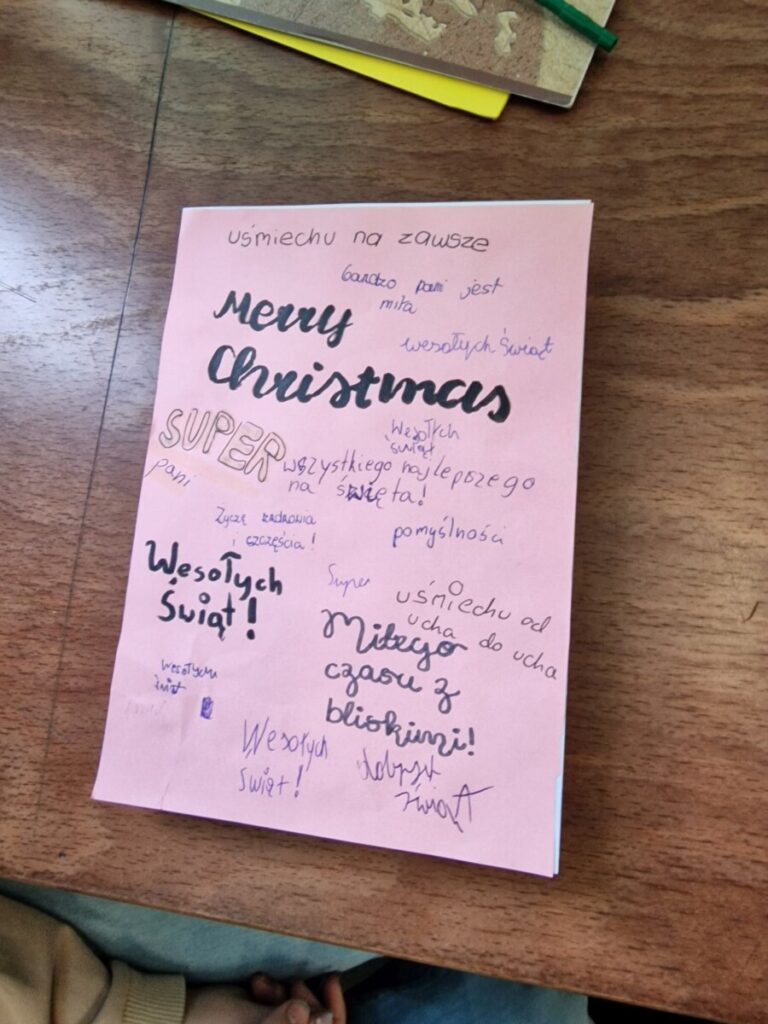 uśmiechu na zawsze
bardzo pani jest
miła
Merry
Christmas
wesołych Świąt
SUPER
pani
Wesołych
świąt
wszystkiego najlepszego
na święta!
Życzę zadrowia
i szczęścia!
pomyślności
Wesołych
Świąt!
Super
uśmiechu od
ucha do ucha
Miłego
czasu z
bliskimi!
Wesołych
świąt
Wesołych
świąt!